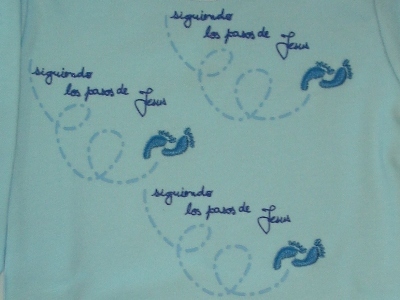 siguiendo
los pasos de
Jesus
siguiendo
los pasos de
Jesus
siguiendo
los pasos de
Jesus